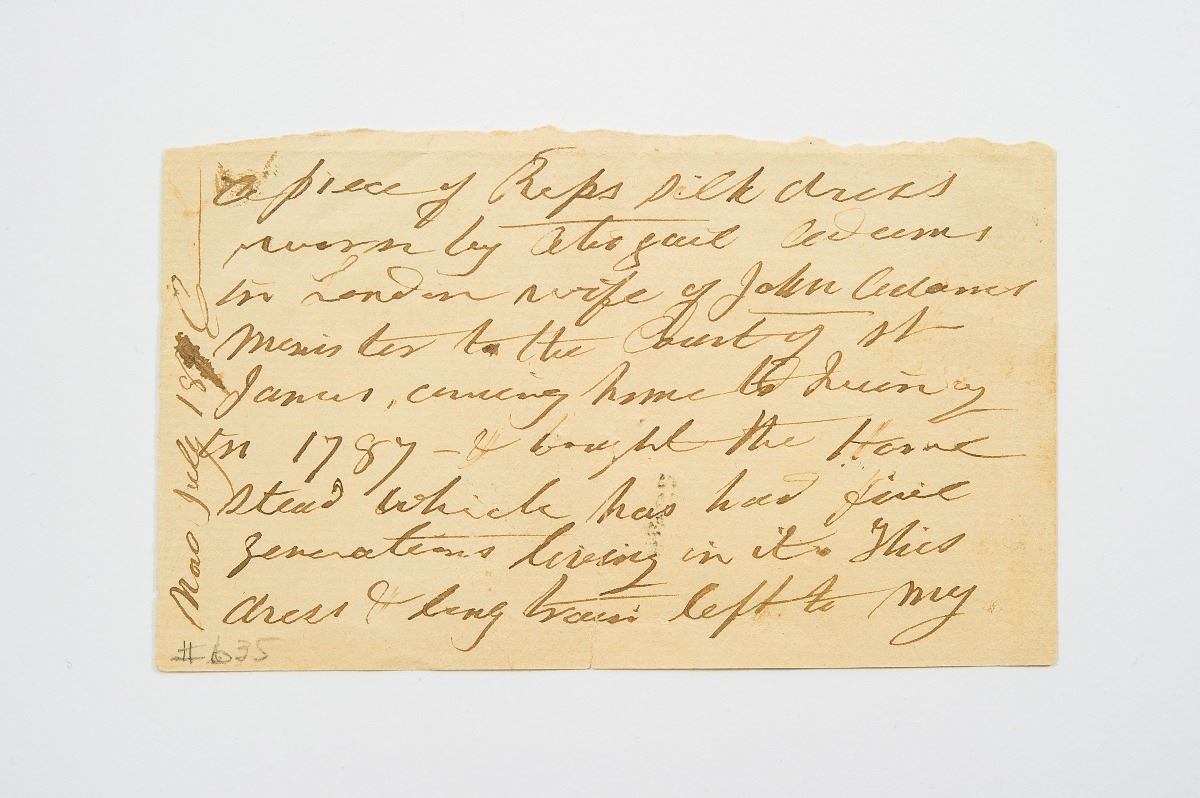 a piece of Reps silk dress
worn by Abigail Adams
in London wife of John Adams
Minister to the Court of St
James, coming home to Quincy
in 1787 - & bought the Home
stead which has had five
generations living in it. This
dress & long train left to my
July 18
#635